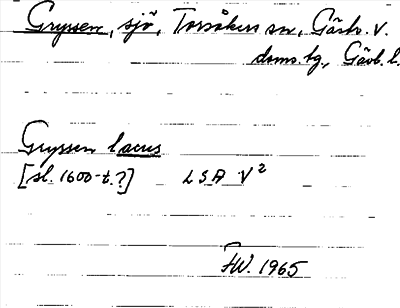 Gryssen, sjö, Torsåkers sn, Gästr. V.
doms. tg., Gävl. l.
Gryssen lacus
[sl. 1600-t.?] LSA V²
FW. 1965